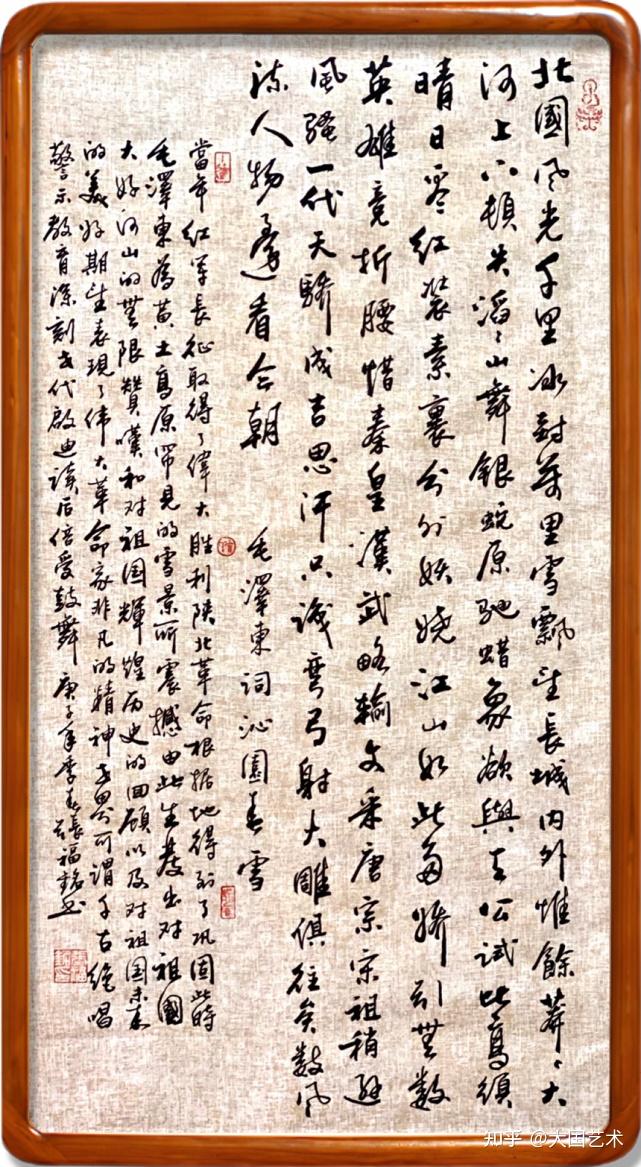 北國风光千里冰封萬里雪飘望長城内外惟餘莽々大
河上下頓失滔々山舞银蛇原驰蜡象欲與天公试比高须
晴日看红装素裹分外妖娆江山如此多娇引無数
英雄竞折腰惜秦皇漢武略输文采唐宗宋祖稍逊
風骚一代天骄成吉思汗只識弯弓射大雕俱往矣数风
流人物還看今朝
毛澤東词沁園春雪
當年红军長征取得了偉大胜利陕北革命根据地得到了巩固此時
毛澤東為黄土高原罕見的雪景所震撼由此生发出对祖國
大好河山的無限赞嘆和对祖国輝煌历史的回顾以及对祖国未来
的美好期望表現了伟大革命家非凡的精神世界可谓千古绝唱
警示教育深刻世代啟迪读后倍受鼓舞 庚子年季春張福铭书
知乎 @大国艺术